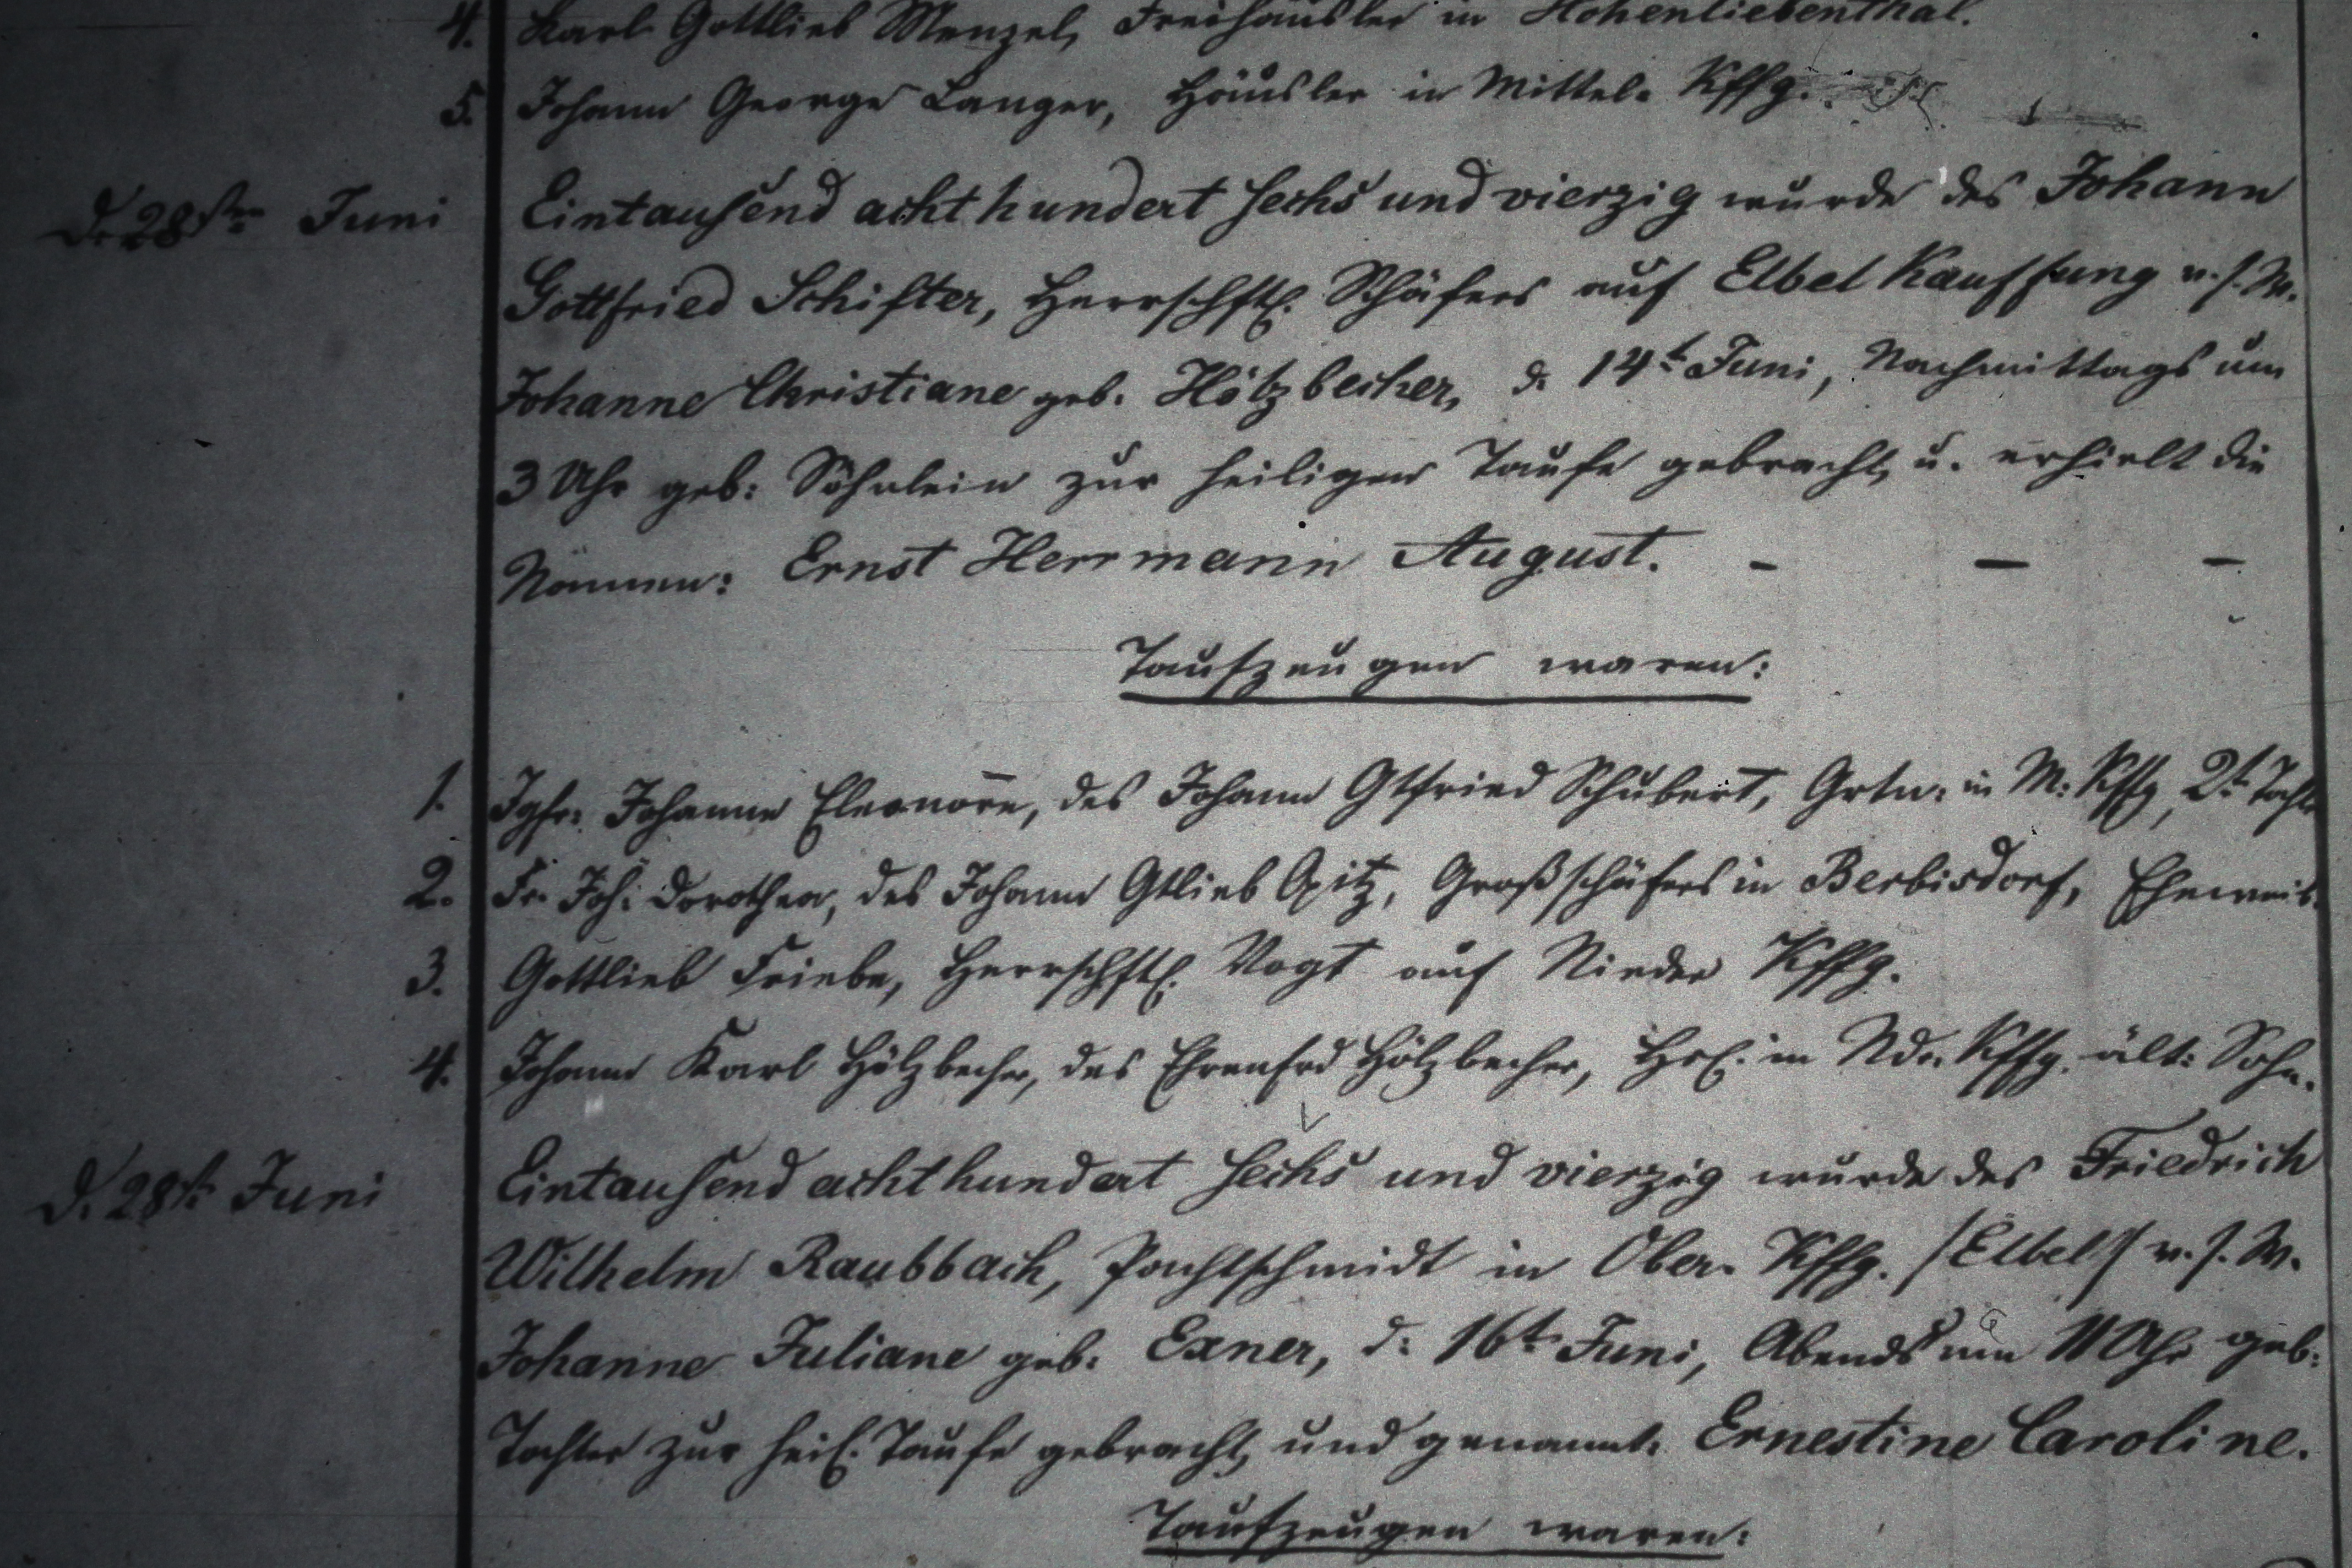 4. Karl Gottlieb Menzel, Freihäusler in Hohenliebenthal.
5. Johann George Langer, Häusler in Mittel- Kffg.
d. 28sten Juni Eintausend achthundert sechs und vierzig wurde des Johann
Gottfried Schifter, Herrschftl. Schäfers auf Elbel Kauffung v. s. W.
Johanne Christiane geb. Hölzbecher, d. 14t Juni, Nachmittags um
3 Uhr geb: Söhnlein zur heiligen Taufe gebracht, u. erhielt die
Namen: Ernst Herrmann August. - - -
Taufzeugen waren:
1. Jgfr: Johanne Eleonore, des Johann Gtfried Schubert, Grtn: in M: Kffg, 2t Tocht
2. Fr. Joh: Dorothea, des Johann Gtlieb Opitz, Großschäfers in Berbisdorf, Eheweib.
3. Gottlieb Friebe, Herrschftl. Vogt auf Nieder Kffg.
4. Johann Karl Hölzbecher, des Ehrenfrd Hölzbecher, Hsl. in Ndr. Kffg. ält: Sohn.
d. 28st Juni Eintausend achthundert sechs und vierzig wurde des Friedrich
Wilhelm Raubbach, Pachtschmidt in Ober- Kffg. /Elbel/ v. s. W.
Johanne Juliane geb: Exner, d: 16t Juni, Abends um 11 Uhr geb:
Tochter zur heil. Taufe gebracht, und genannt: Ernestine Caroline.
Taufzeugen waren: